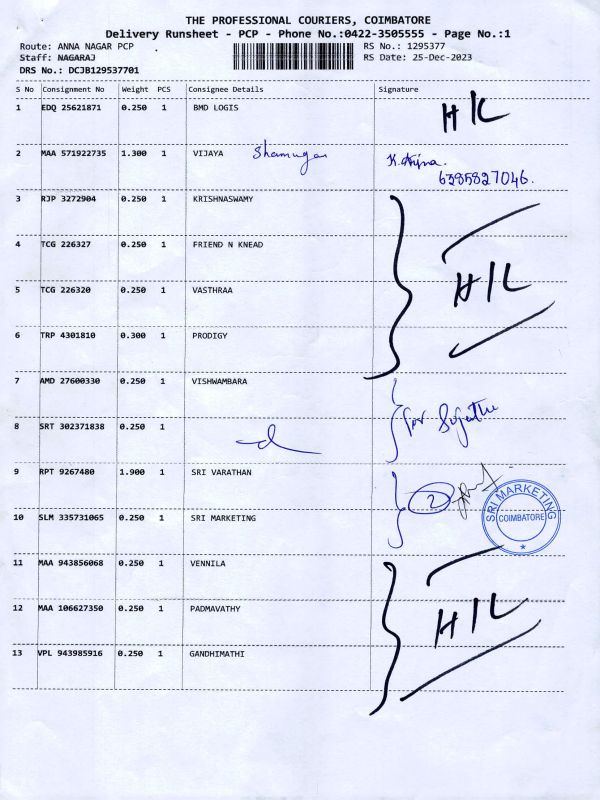 THE PROFESSIONAL COURIERS, COIMBATORE
Delivery Runsheet - PCP - Phone No.:0422-3505555 - Page No.:1
Route: ANNA NAGAR PCP RS No.: 1295377
Staff: NAGARAJ RS Date: 25-Dec-2023
DRS No.: DCJB129537701
S No Consignment No Weight PCS Consignee Details Signature
1 EDQ 25621871 0.250 1 BMD LOGIS H/L
2 MAA 571922735 1.300 1 VIJAYA
6385827046.
3 RJP 3272904 0.250 1 KRISHNASWAMY
4 TCG 226327 0.250 1 FRIEND N KNEAD
5 TCG 226320 0.250 1 VASTHRAA H/L
6 TRP 4301810 0.300 1 PRODIGY
7 AMD 27600330 0.250 1 VISHWAMBARA
for
8 SRT 302371838 0.250 1
9 RPT 9267480 1.900 1 SRI VARATHAN 2
10 SLM 335731065 0.250 1 SRI MARKETING SRI MARKETING COIMBATORE
11 MAA 943856068 0.250 1 VENNILA
12 MAA 106627350 0.250 1 PADMAVATHY H/L
13 VPL 943985916 0.250 1 GANDHIMATHI